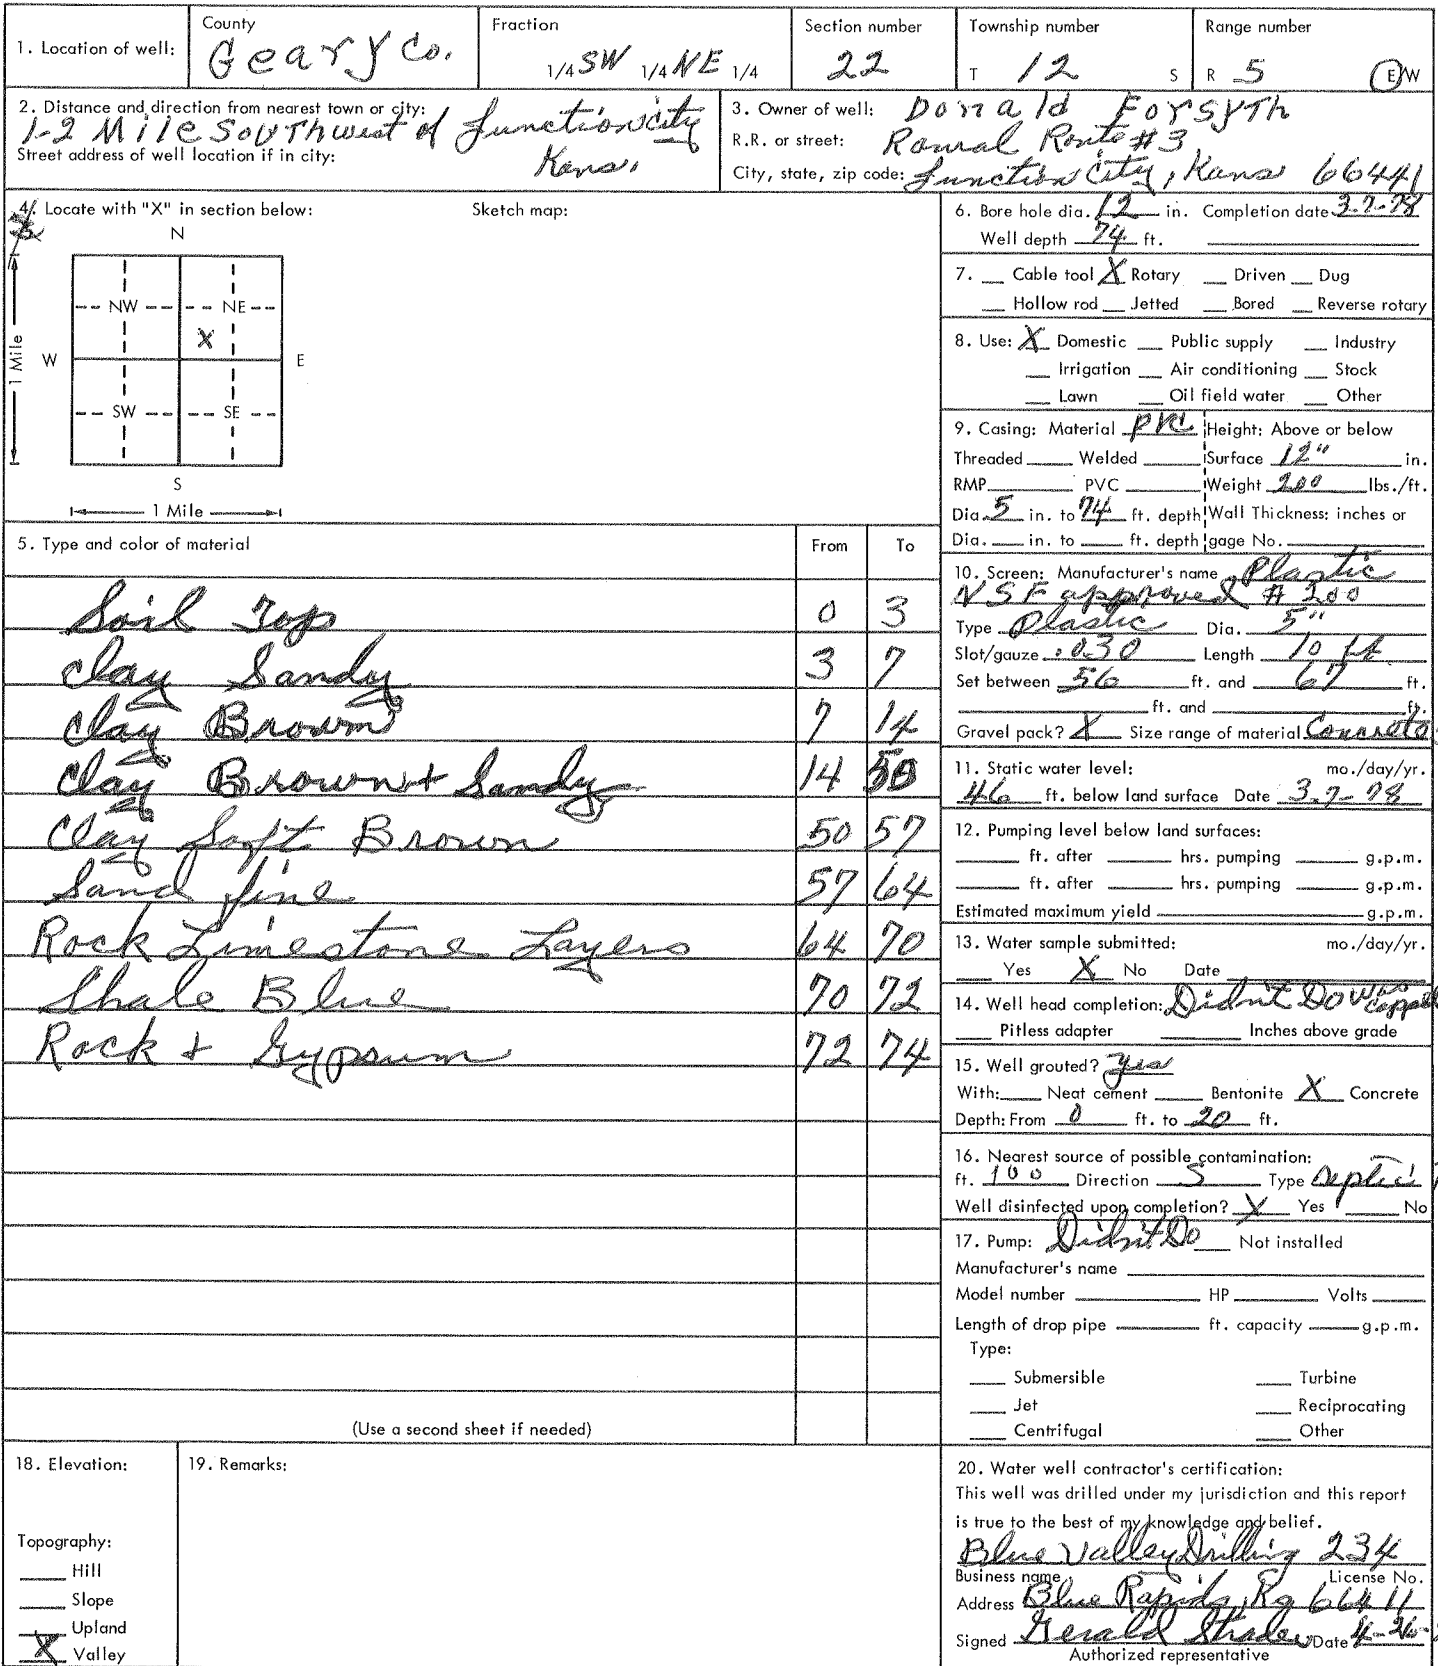 1. Location of well: County Geary Co. Fraction 1/4 SW 1/4 NE 1/4 Section number 22 Township number T 12 S Range number R 5 E/W
2. Distance and direction from nearest town or city:
1-2 Mile Southwest of Junction city
Street address of well location if in city: Kans.
3. Owner of well: Donald Forsyth
R.R. or street: Roural Route #3
City, state, zip code: Junction City, Kans 66441
4. Locate with "X" in section below: Sketch map:
N
NW NE
X
W E
1 Mile
SW SE
S
1 Mile
5. Type and color of material From To
Soil Top 0 3
Clay Sandy 3 7
Clay Brown 7 14
Clay Brown + Sandy 14 50
Clay Soft Brown 50 57
Sand fine 57 64
Rock Limestone Layers 64 70
Shale Blue 70 72
Rock + Gypsum 72 74
(Use a second sheet if needed)
6. Bore hole dia. 12 in. Completion date 3-7-78
Well depth 74 ft.
7. Cable tool X Rotary Driven Dug
Hollow rod Jetted Bored Reverse rotary
8. Use: X Domestic Public supply Industry
Irrigation Air conditioning Stock
Lawn Oil field water Other
9. Casing: Material PVC Height: Above or below
Threaded Welded Surface 12" in.
RMP PVC Weight 200 lbs./ft.
Dia. 5 in. to 74 ft. depth Wall Thickness: inches or
Dia. in. to ft. depth gage No.
10. Screen: Manufacturer's name Plastic
NSF approved # 200
Type Plastic Dia. 5"
Slot/gauze .030 Length 10 ft
Set between 56 ft. and 67 ft.
ft. and ft.
Gravel pack? X Size range of material Concrete
11. Static water level: mo./day/yr.
46 ft. below land surface Date 3-7-78
12. Pumping level below land surfaces:
ft. after hrs. pumping g.p.m.
ft. after hrs. pumping g.p.m.
Estimated maximum yield g.p.m.
13. Water sample submitted: mo./day/yr.
Yes X No Date
14. Well head completion: Didn't Do was capped
Pitless adapter Inches above grade
15. Well grouted? yes
With: Neat cement Bentonite X Concrete
Depth: From 0 ft. to 20 ft.
16. Nearest source of possible contamination:
ft. 100 Direction S Type Septic
Well disinfected upon completion? X Yes No
17. Pump: Didn't Do Not installed
Manufacturer's name
Model number HP Volts
Length of drop pipe ft. capacity g.p.m.
Type:
Submersible Turbine
Jet Reciprocating
Centrifugal Other
18. Elevation:
Topography:
Hill
Slope
Upland
X Valley
19. Remarks:
20. Water well contractor's certification:
This well was drilled under my jurisdiction and this report
is true to the best of my knowledge and belief.
Blue Valley Drilling 234
Business name License No.
Address Blue Rapids, Ks 66411
Signed Gerald Strader Date 4-26-
Authorized representative